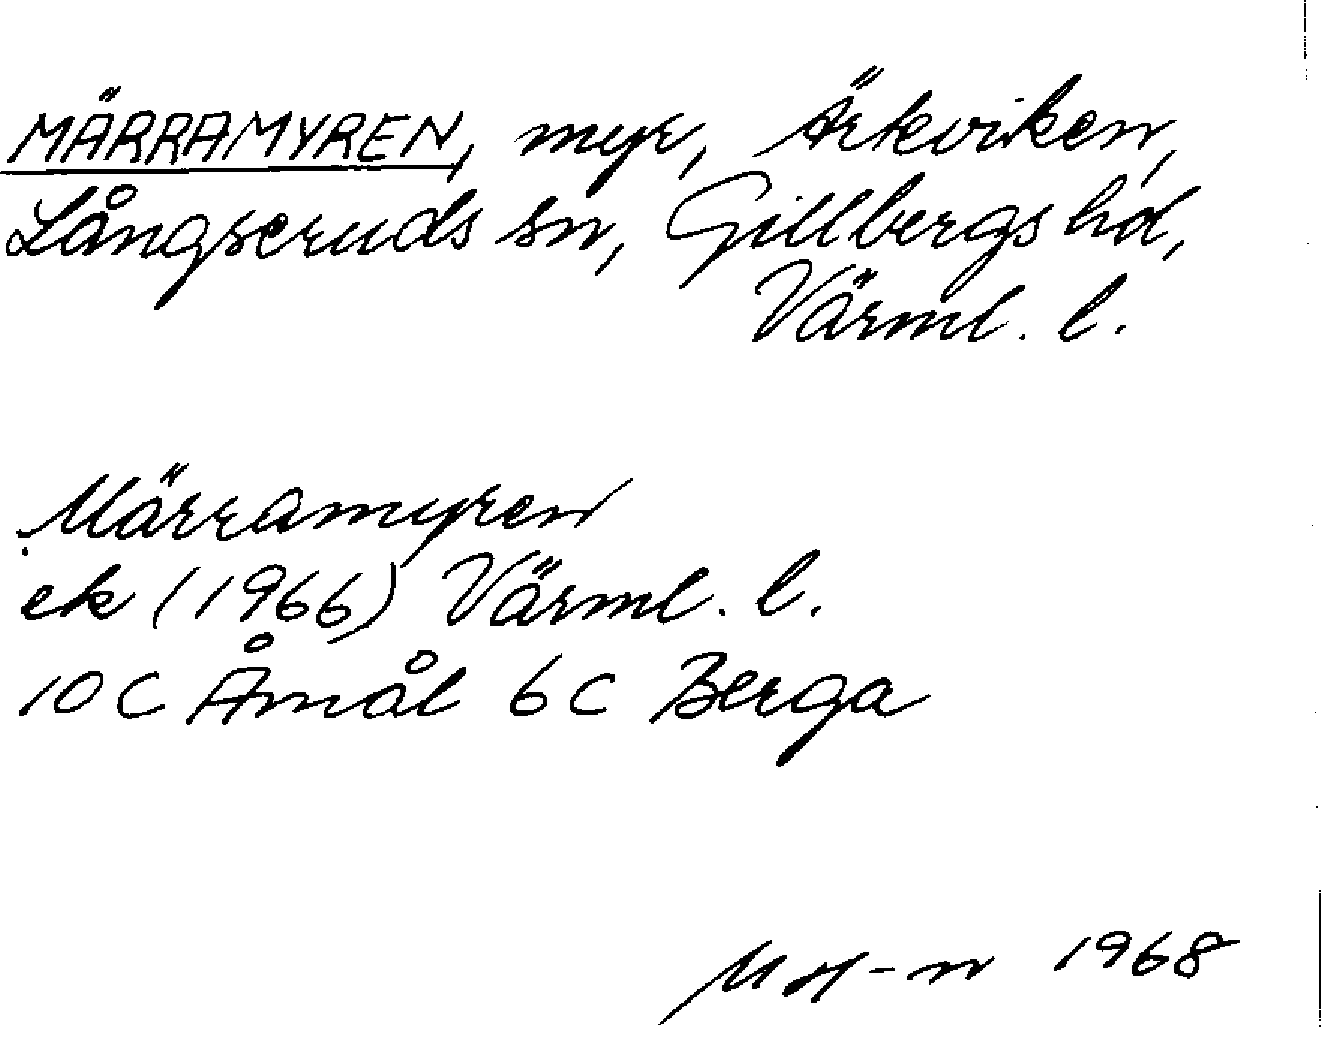 MÄRRAMYREN, myr, Ärkviken,
Långseruds sn, Gillbergs hd,
Värml. l.
Märramyren
ek (1966) Värml. l.
10 C Åmål 6 C Berga
MH-n 1968